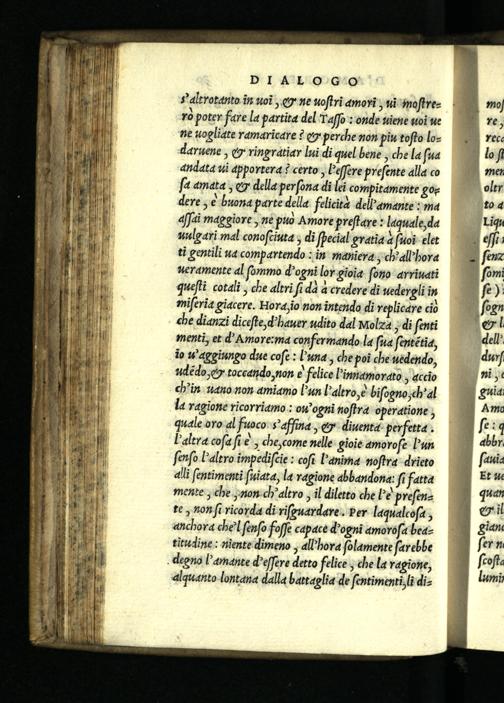 DIALOGO
s'altrotanto in uoi, & ne uostri amori, ui mostre-
rò poter fare la partita del Tasso: onde uiene uoi ue
ne uogliate ramaricare? & perche non piu tosto lo-
daruene, & ringratiar lui di quel bene, che la sua
andata ui apporterà? certo, l'essere presente alla co
sa amata, & della persona di lei compitamente go-
dere, è buona parte della felicità dell'amante: ma
assai maggiore, ne può Amore prestare: laquale, da
uulgari mal conosciuta, di special gratia à suoi elet
ti gentili ua compartendo: in maniera, ch'all'hora
ueramente al sommo d'ogni lor gioia sono arriuati
questi cotali, che altri si dà à credere di uedergli in
miseria giacere. Hora, io non intendo di replicare ciò
che dianzi diceste, d'hauer udito dal Molza, di senti
menti, et d'Amore: ma confermando la sua sentētia,
io u'aggiungo due cose: l'una, che poi che uedendo,
udēdo, & toccando, non è felice l'innamorato, accio
ch'in uano non amiamo l'un l'altro, è bisogno, ch'al
la ragione ricorriamo: ou'ogni nostra operatione,
quale oro al fuoco s'affina, & diuenta perfetta.
l'altra cosa si è, che, come nelle gioie amorose l'un
senso l'altro impedisce: cosi l'anima nostra drieto
alli sentimenti suiata, la ragione abbandona: si fatta
mente, che, non ch'altro, il diletto che l'è presen-
te, non si ricorda di risguardare. Per laqualcosa,
anchora che'l senso fosse capace d'ogni amorosa bea-
titudine: niente dimeno, all'hora solamente sarebbe
degno l'amante d'essere detto felice, che la ragione,
alquanto lontana dalla battaglia de sentimenti, li di-